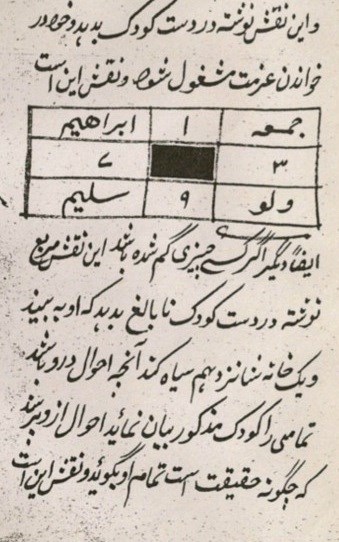 و این نقش نوشته در دست کودک بدهد و خود در
خواندن عزمت مشغول شود و نقش این است
جمعه ۱ ابراهیم
۳ ۷
ولو ۹ سلیم
ایضاً دیگر اگر کسے چیزی گم شده باشد این نقش مربع
نوشته در دست کودک نابالغ بدهد که او به بیند
و یک خانه شانزدهم سیاه کند آنچه احوال درو باشد
تمامی را کودک مذکور بیان نماید احوال ازو پرسند
که چگونه حقیقت است تمام او بگوید و نقش این است